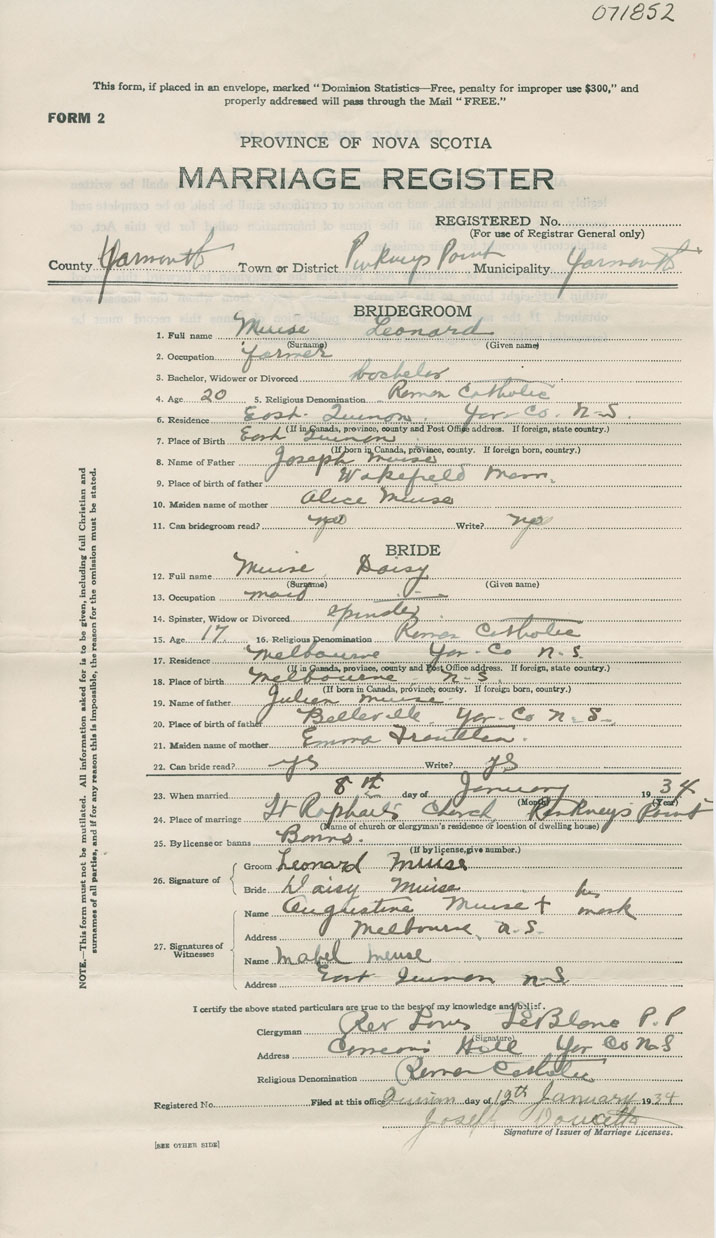 071852
This form, if placed in an envelope, marked "Dominion Statistics—Free, penalty for improper use $300," and
properly addressed will pass through the Mail "FREE."
FORM 2
PROVINCE OF NOVA SCOTIA
MARRIAGE REGISTER
REGISTERED No.
(For use of Registrar General only)
County Yarmouth Town or District Pinkneys Point Municipality Yarmouth
BRIDEGROOM
1. Full name Muise Leonard
(Surname) (Given name)
2. Occupation farmer
3. Bachelor, Widower or Divorced bachelor
4. Age 20 5. Religious Denomination Roman Catholic
6. Residence East Quinan Yar-Co N-S.
(If in Canada, province, county and Post Office address. If foreign, state country.)
7. Place of Birth East Quinan
(If born in Canada, province, county. If foreign born, country.)
8. Name of Father Joseph Muise
9. Place of birth of father Wakefield Mass.
10. Maiden name of mother Alice Muise
11. Can bridegroom read? Write?
BRIDE
12. Full name Muise Daisy
(Surname) (Given name)
13. Occupation maid
14. Spinster, Widow or Divorced spinster
15. Age 17 16. Religious Denomination Roman Catholic
17. Residence Melbourne Yar-Co N-S.
(If in Canada, province, county and Post Office address. If foreign, state country.)
18. Place of birth Melbourne N-S.
(If born in Canada, province, county. If foreign born, country.)
19. Name of father Julien Muise
20. Place of birth of father Belleville Yar-Co N-S-
21. Maiden name of mother Emma
22. Can bride read? ys Write? ys
23. When married 8th day of January 1934
(Month) (Year)
24. Place of marriage St Raphael's Church Pinkneys Point
(Name of church or clergyman's residence or location of dwelling house)
25. By license or banns Banns.
(If by license, give number.)
26. Signature of
Groom Leonard Muise
Bride Daisy Muise
27. Signatures of Witnesses
Name Augustine Muise + his mark
Address Melbourne, N.S.
Name Mabel Meuse
Address East Quinan N-S
I certify the above stated particulars are true to the best of my knowledge and belief.
Clergyman Rev Louis LeBlanc P.P
(Signature)
Address Comeau's Hill Yar Co N-S
Religious Denomination Roman Catholic
Registered No. Filed at this office Quinan day of 12th January 1934
Joseph Doucette
Signature of Issuer of Marriage Licenses.
[SEE OTHER SIDE]
NOTE.—This form must not be mutilated. All information asked for is to be given, including full Christian and
surnames of all parties, and if for any reason this is impossible, the reason for the omission must be stated.